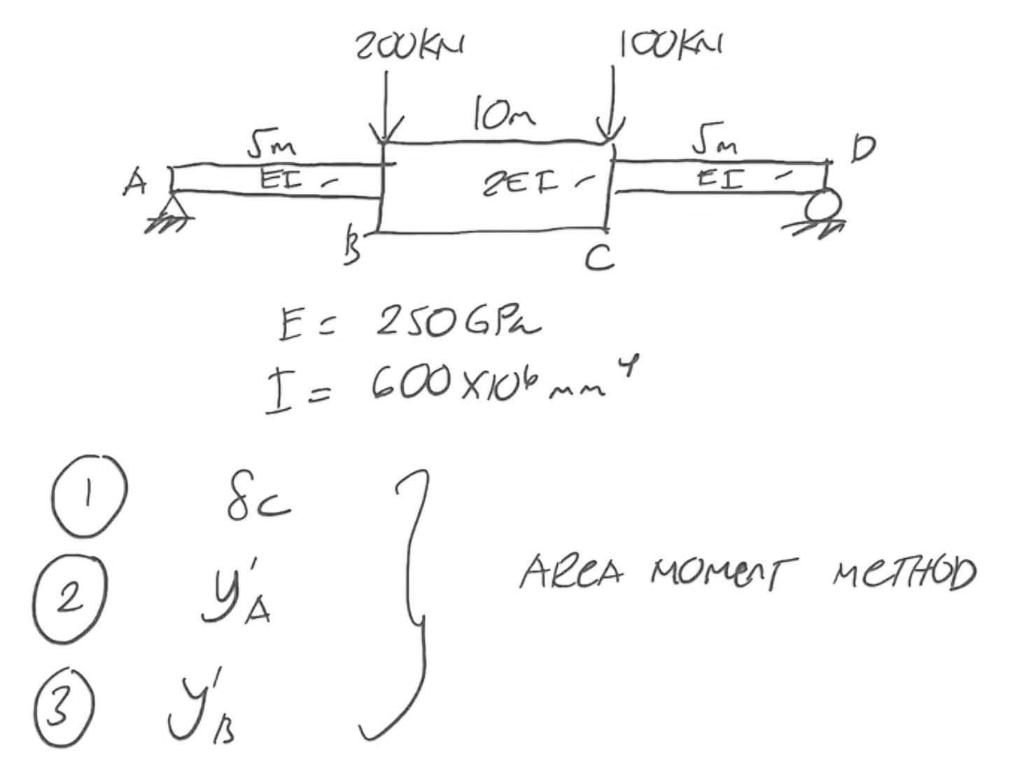 200KN 100KN
10m
5m 5m D
A EI 2EI EI
B C
E = 250GPa
I = 600X10⁶mm⁴
1 δc
2 y'A
AREA MOMENT METHOD
3 y'B